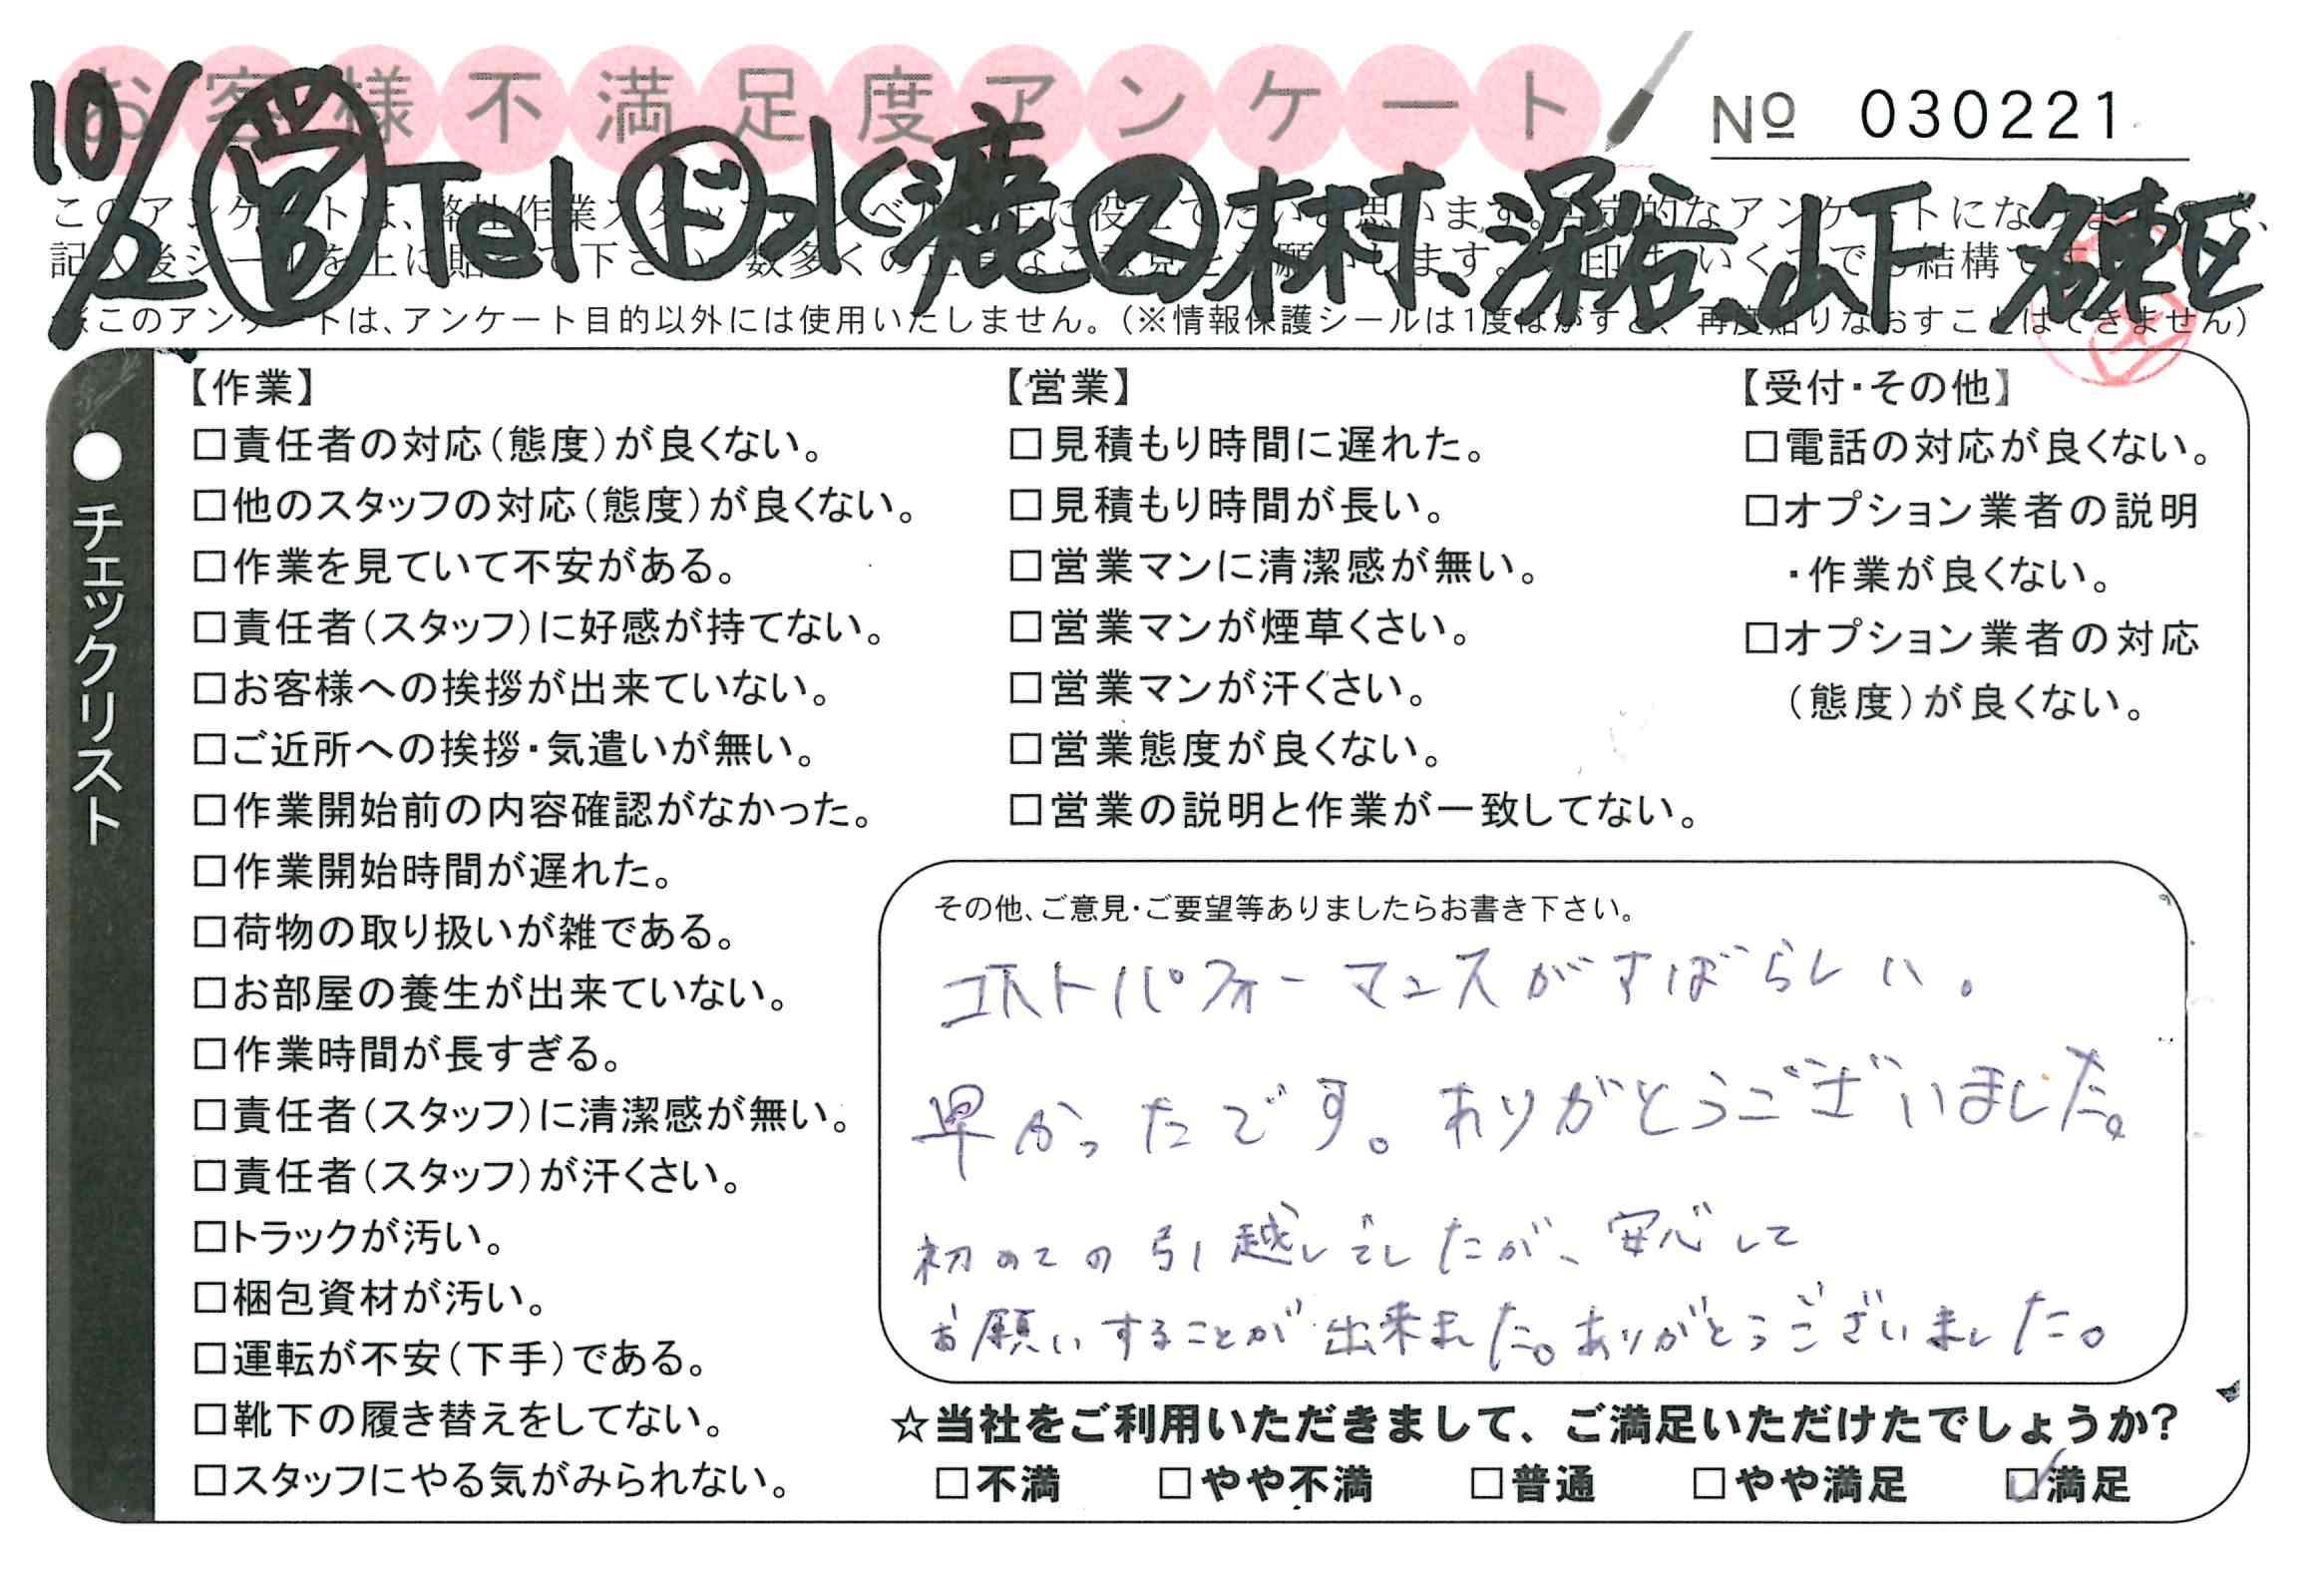 お客様不満足度アンケート
№ 030221
10/2 営B Tel ド 水 鹿 ス 林村、深谷、山下 名東区
このアンケートは、弊社作業スタッフのレベル向上に役立てたいと思います。
記入後シールを上に貼って下さい。数多くの正直なご意見をお願いします。印はいくつでも結構です。
※このアンケートは、アンケート目的以外には使用いたしません。(※情報保護シールは1度はがすと、再度貼りなおすことはできません)
●チェックリスト
【作業】
□責任者の対応(態度)が良くない。
□他のスタッフの対応(態度)が良くない。
□作業を見ていて不安がある。
□責任者(スタッフ)に好感が持てない。
□お客様への挨拶が出来ていない。
□ご近所への挨拶・気遣いが無い。
□作業開始前の内容確認がなかった。
□作業開始時間が遅れた。
□荷物の取り扱いが雑である。
□お部屋の養生が出来ていない。
□作業時間が長すぎる。
□責任者(スタッフ)に清潔感が無い。
□責任者(スタッフ)が汗くさい。
□トラックが汚い。
□梱包資材が汚い。
□運転が不安(下手)である。
□靴下の履き替えをしてない。
□スタッフにやる気がみられない。
【営業】
□見積もり時間に遅れた。
□見積もり時間が長い。
□営業マンに清潔感が無い。
□営業マンが煙草くさい。
□営業マンが汗くさい。
□営業態度が良くない。
□営業の説明と作業が一致してない。
【受付・その他】
□電話の対応が良くない。
□オプション業者の説明
・作業が良くない。
□オプション業者の対応
(態度)が良くない。
その他、ご意見・ご要望等ありましたらお書き下さい。
コストパフォーマンスがすばらしい。
早かったです。ありがとうございました。
初めての引越しでしたが、安心して
お願いすることが出来ました。ありがとうございました。
☆当社をご利用いただきまして、ご満足いただけたでしょうか?
□不満 □やや不満 □普通 □やや満足 ☑満足